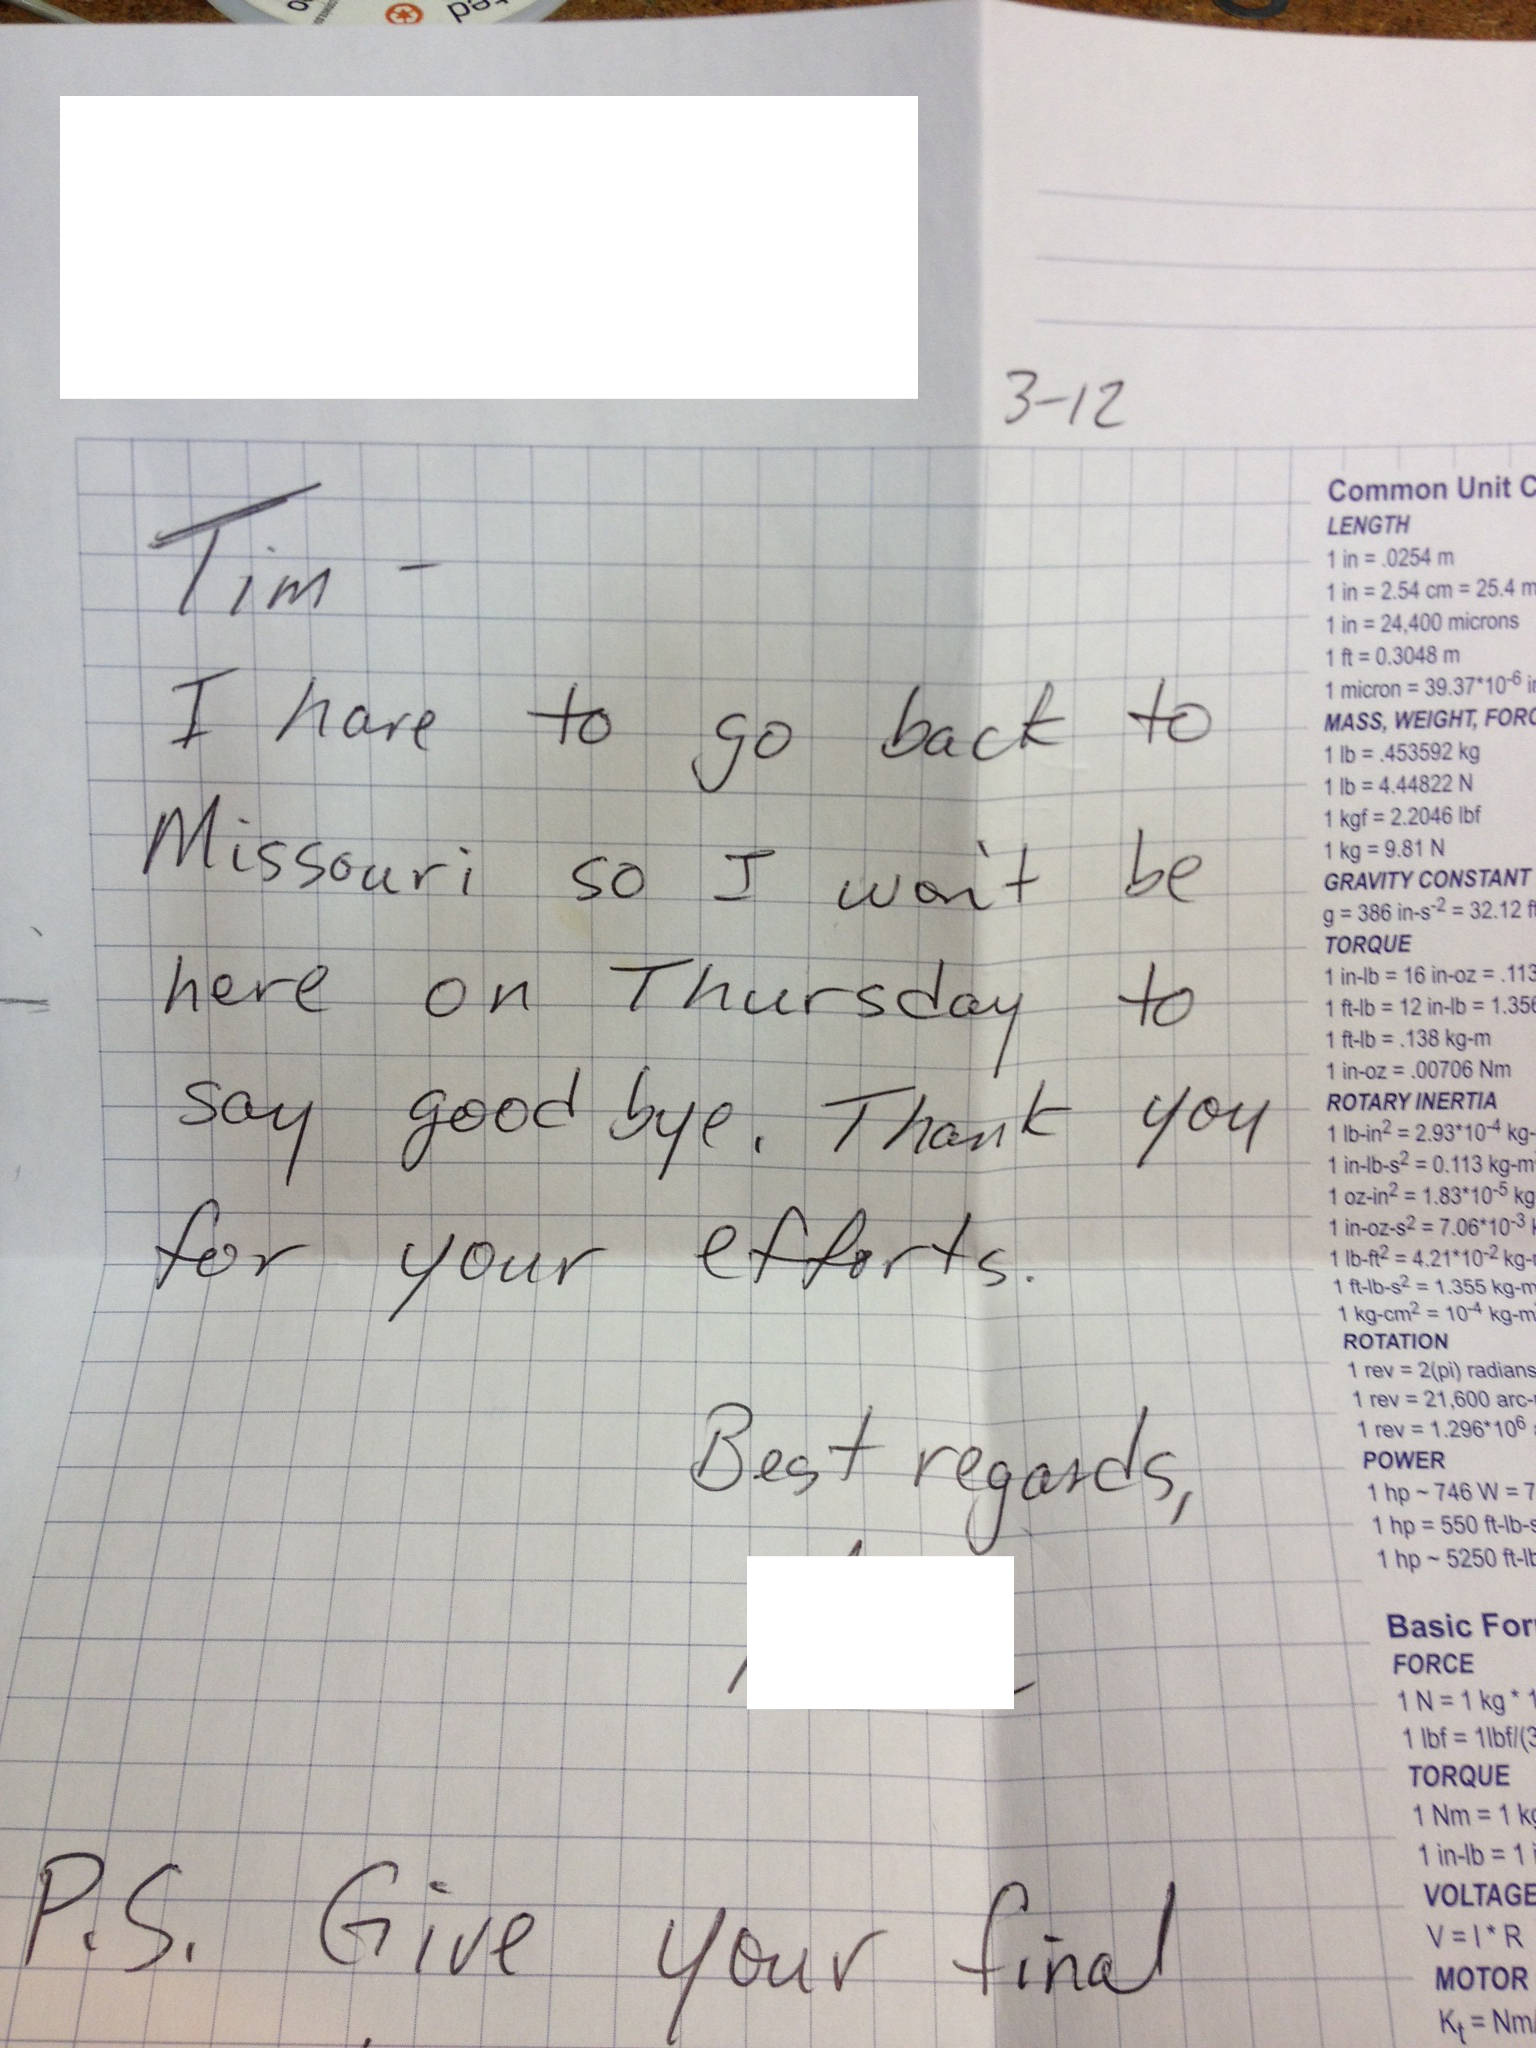 3-12
Tim -
I have to go back to
Missouri so I won't be
here on Thursday to
say good bye. Thank you
for your efforts.
Best regards,
P.S. Give your final
Common Unit C
LENGTH
1 in = .0254 m
1 in = 2.54 cm = 25.4 m
1 in = 24,400 microns
1 ft = 0.3048 m
1 micron = 39.37*10⁻⁶ in
MASS, WEIGHT, FORC
1 lb = .453592 kg
1 lb = 4.44822 N
1 kgf = 2.2046 lbf
1 kg = 9.81 N
GRAVITY CONSTANT
g = 386 in-s⁻² = 32.12 ft
TORQUE
1 in-lb = 16 in-oz = .113
1 ft-lb = 12 in-lb = 1.356
1 ft-lb = .138 kg-m
1 in-oz = .00706 Nm
ROTARY INERTIA
1 lb-in² = 2.93*10⁻⁴ kg-
1 in-lb-s² = 0.113 kg-m
1 oz-in² = 1.83*10⁻⁵ kg
1 in-oz-s² = 7.06*10⁻³ k
1 lb-ft² = 4.21*10⁻² kg-
1 ft-lb-s² = 1.355 kg-m
1 kg-cm² = 10⁻⁴ kg-m
ROTATION
1 rev = 2(pi) radians
1 rev = 21,600 arc-
1 rev = 1.296*10⁶
POWER
1 hp ~ 746 W = 7
1 hp = 550 ft-lb-s
1 hp ~ 5250 ft-lb
Basic For
FORCE
1 N = 1 kg * 1
1 lbf = 1lbf/(3
TORQUE
1 Nm = 1 kg
1 in-lb = 1 i
VOLTAGE
V = I * R
MOTOR
Kt = Nm/